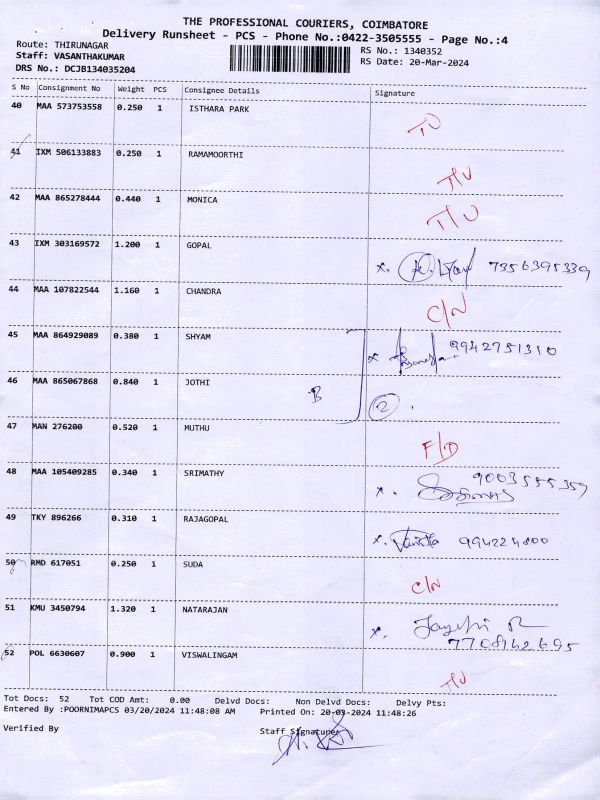 THE PROFESSIONAL COURIERS, COIMBATORE
Delivery Runsheet - PCS - Phone No.:0422-3505555 - Page No.:4
Route: THIRUNAGAR
Staff: VASANTHAKUMAR
DRS No.: DCJB134035204
RS No.: 1340352
RS Date: 20-Mar-2024
S No Consignment No Weight PCS Consignee Details Signature
40 MAA 573753558 0.250 1 ISTHARA PARK
41 IXM 506133883 0.250 1 RAMAMOORTHI T/U
42 MAA 865278444 0.440 1 MONICA T/U
43 IXM 303169572 1.200 1 GOPAL x. 7356395339
44 MAA 107822544 1.160 1 CHANDRA C/N
45 MAA 864929089 0.380 1 SHYAM x 9942751310
46 MAA 865067868 0.840 1 JOTHI B 2
47 MAN 276200 0.520 1 MUTHU F/D
48 MAA 105409285 0.340 1 SRIMATHY x. 9003555359
49 TKY 896266 0.310 1 RAJAGOPAL x. 994224800
50 RMD 617051 0.250 1 SUDA C/N
51 KMU 3450794 1.320 1 NATARAJAN x.
7708942695
52 POL 6630607 0.900 1 VISWALINGAM T/U
Tot Docs: 52 Tot COD Amt: 0.00 Delvd Docs: Non Delvd Docs: Delvy Pts:
Entered By :POORNIMAPCS 03/20/2024 11:48:08 AM Printed On: 20-03-2024 11:48:26
Verified By Staff Signature